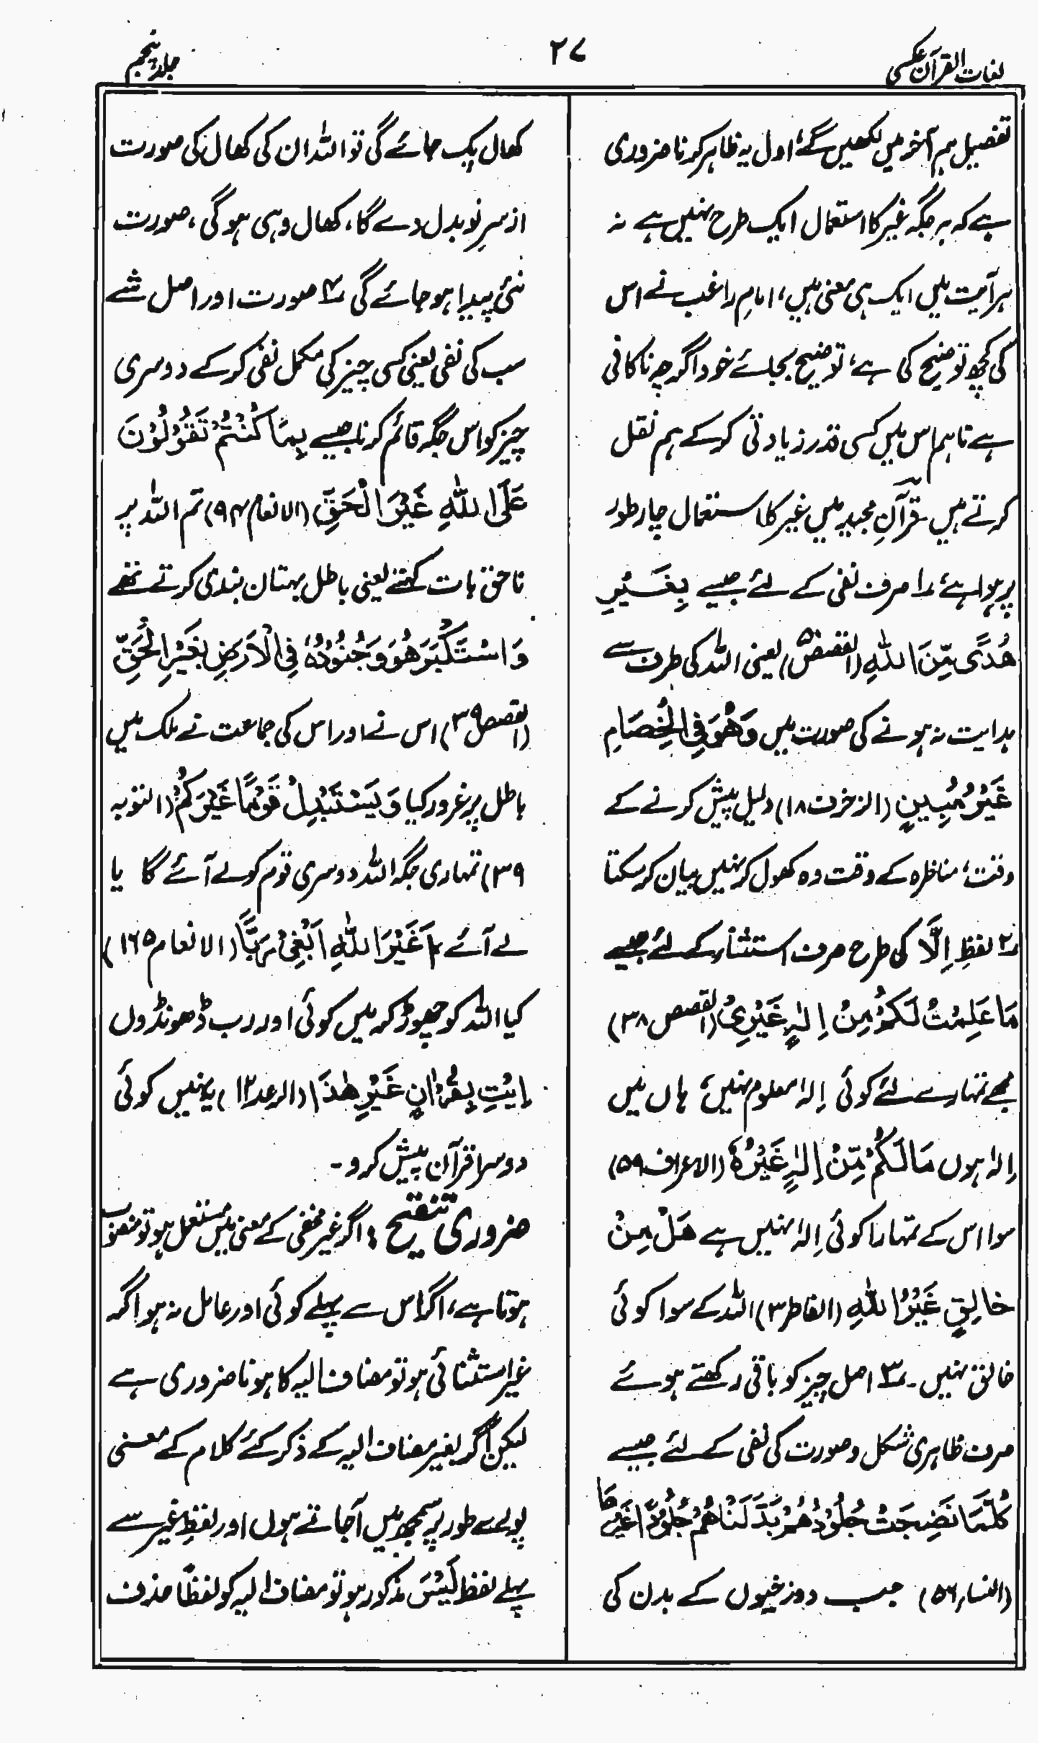 لغات القرآن عکسی
۲۷
جلد پنجم
تفصیل ہم آخر میں لکھیں گے، اول یہ ظاہر کرنا ضروری
ہے کہ ہر جگہ غیر کا استعمال ایک طرح نہیں ہے نہ
ہر آیت میں ایک ہی معنی ہیں، امام راغب نے اس
کی کچھ توضیح کی ہے، توضیح بجائے خود اگرچہ ناکافی
ہے تاہم اس میں کسی قدر زیادتی کر کے ہم نقل
کرتے ہیں۔ قرآنِ مجید میں غیر کا استعمال چار طور
پر ہوا ہے، ۱؎ صرف نفی کے لئے جیسے بِغَیْرِ
ھُدًی مِّنَ اللّٰہِ (القصص ۵۰) یعنی اللہ کی طرف سے
ہدایت نہ ہونے کی صورت میں وَھُوَ فِی الْخِصَامِ
غَیْرُ مُبِیْنٍ (الزخرف ۱۸) دلیل پیش کرنے کے
وقت، مناظرہ کے وقت وہ کھول کر نہیں بیان کر سکتا
۲؎ لفظِ اِلَّا کی طرح صرف استثناء کے لئے جیسے
مَا عَلِمْتُ لَکُمْ مِنْ اِلٰہٍ غَیْرِیْ (القصص ۳۸)
مجھے تمہارے لئے کوئی اِلٰہ معلوم نہیں، ہاں میں
اِلٰہ ہوں مَا لَکُمْ مِّنْ اِلٰہٍ غَیْرُہٗ (الاعراف ۵۹)
سوا اس کے تمہارا کوئی اِلٰہ نہیں ہے ھَلْ مِنْ
خَالِقٍ غَیْرُ اللّٰہِ (الفاطر ۳) اللہ کے سوا کوئی
خالق نہیں۔ ۳؎ اصل چیز کو باقی رکھتے ہوئے
صرف ظاہری شکل و صورت کی نفی کے لئے جیسے
کُلَّمَا نَضِجَتْ جُلُوْدُھُمْ بَدَّلْنَاھُمْ جُلُوْدًا غَیْرَھَا
(النساء ۵۶) جب دوزخیوں کے بدن کی
کھال پک جائے گی تو اللہ ان کی کھال کی صورت
از سرِ نو بدل دے گا، کھال وہی ہوگی، صورت
نئی پیدا ہو جائے گی ۴؎ صورت اور اصل شے
سب کی نفی یعنی کسی چیز کی مکمل نفی کر کے دوسری
چیز کو اس جگہ قائم کرنا جیسے بِمَا کُنْتُمْ تَقُوْلُوْنَ
عَلَی اللّٰہِ غَیْرَ الْحَقِّ (الانعام ۹۴) تم اللہ پر
ناحق بات کہتے یعنی باطل بہتان بندی کرتے تھے
وَاسْتَکْبَرَ ھُوَ وَجُنُوْدُہٗ فِی الْاَرْضِ بِغَیْرِ الْحَقِّ
(القصص ۳۹) اس نے اور اس کی جماعت نے ملک میں
باطل پر غرور کیا وَیَسْتَبْدِلْ قَوْمًا غَیْرَکُمْ (التوبہ
۳۹) تمہاری جگہ اللہ دوسری قوم کو لے آئے گا یا
لے آئے ۴ اَغَیْرَ اللّٰہِ اَبْغِیْ رَبًّا (الانعام ۱۶۵)
کیا اللہ کو چھوڑ کر میں کوئی اور رب ڈھونڈوں
اِیْتِ بِقُرْاٰنٍ غَیْرِ ھٰذَا (الرعد ۱۲) یہ نہیں کوئی
دوسرا قرآن پیش کرو۔
ضروری تنقیح: اگر غیر نفی کے معنی میں مستعمل ہو تو منصوب
ہوتا ہے، اگر اس سے پہلے کوئی اور عامل نہ ہو اگر
غیر استثنائی ہو تو مضاف الیہ کا ہونا ضروری ہے
لیکن اگر بغیر مضاف الیہ کے ذکر کئے کلام کے معنی
پورے طور پر سمجھ میں آجاتے ہوں اور لفظِ غیر سے
پہلے لفظ لَیْسَ مذکور ہو تو مضاف الیہ کو لفظًا حذف